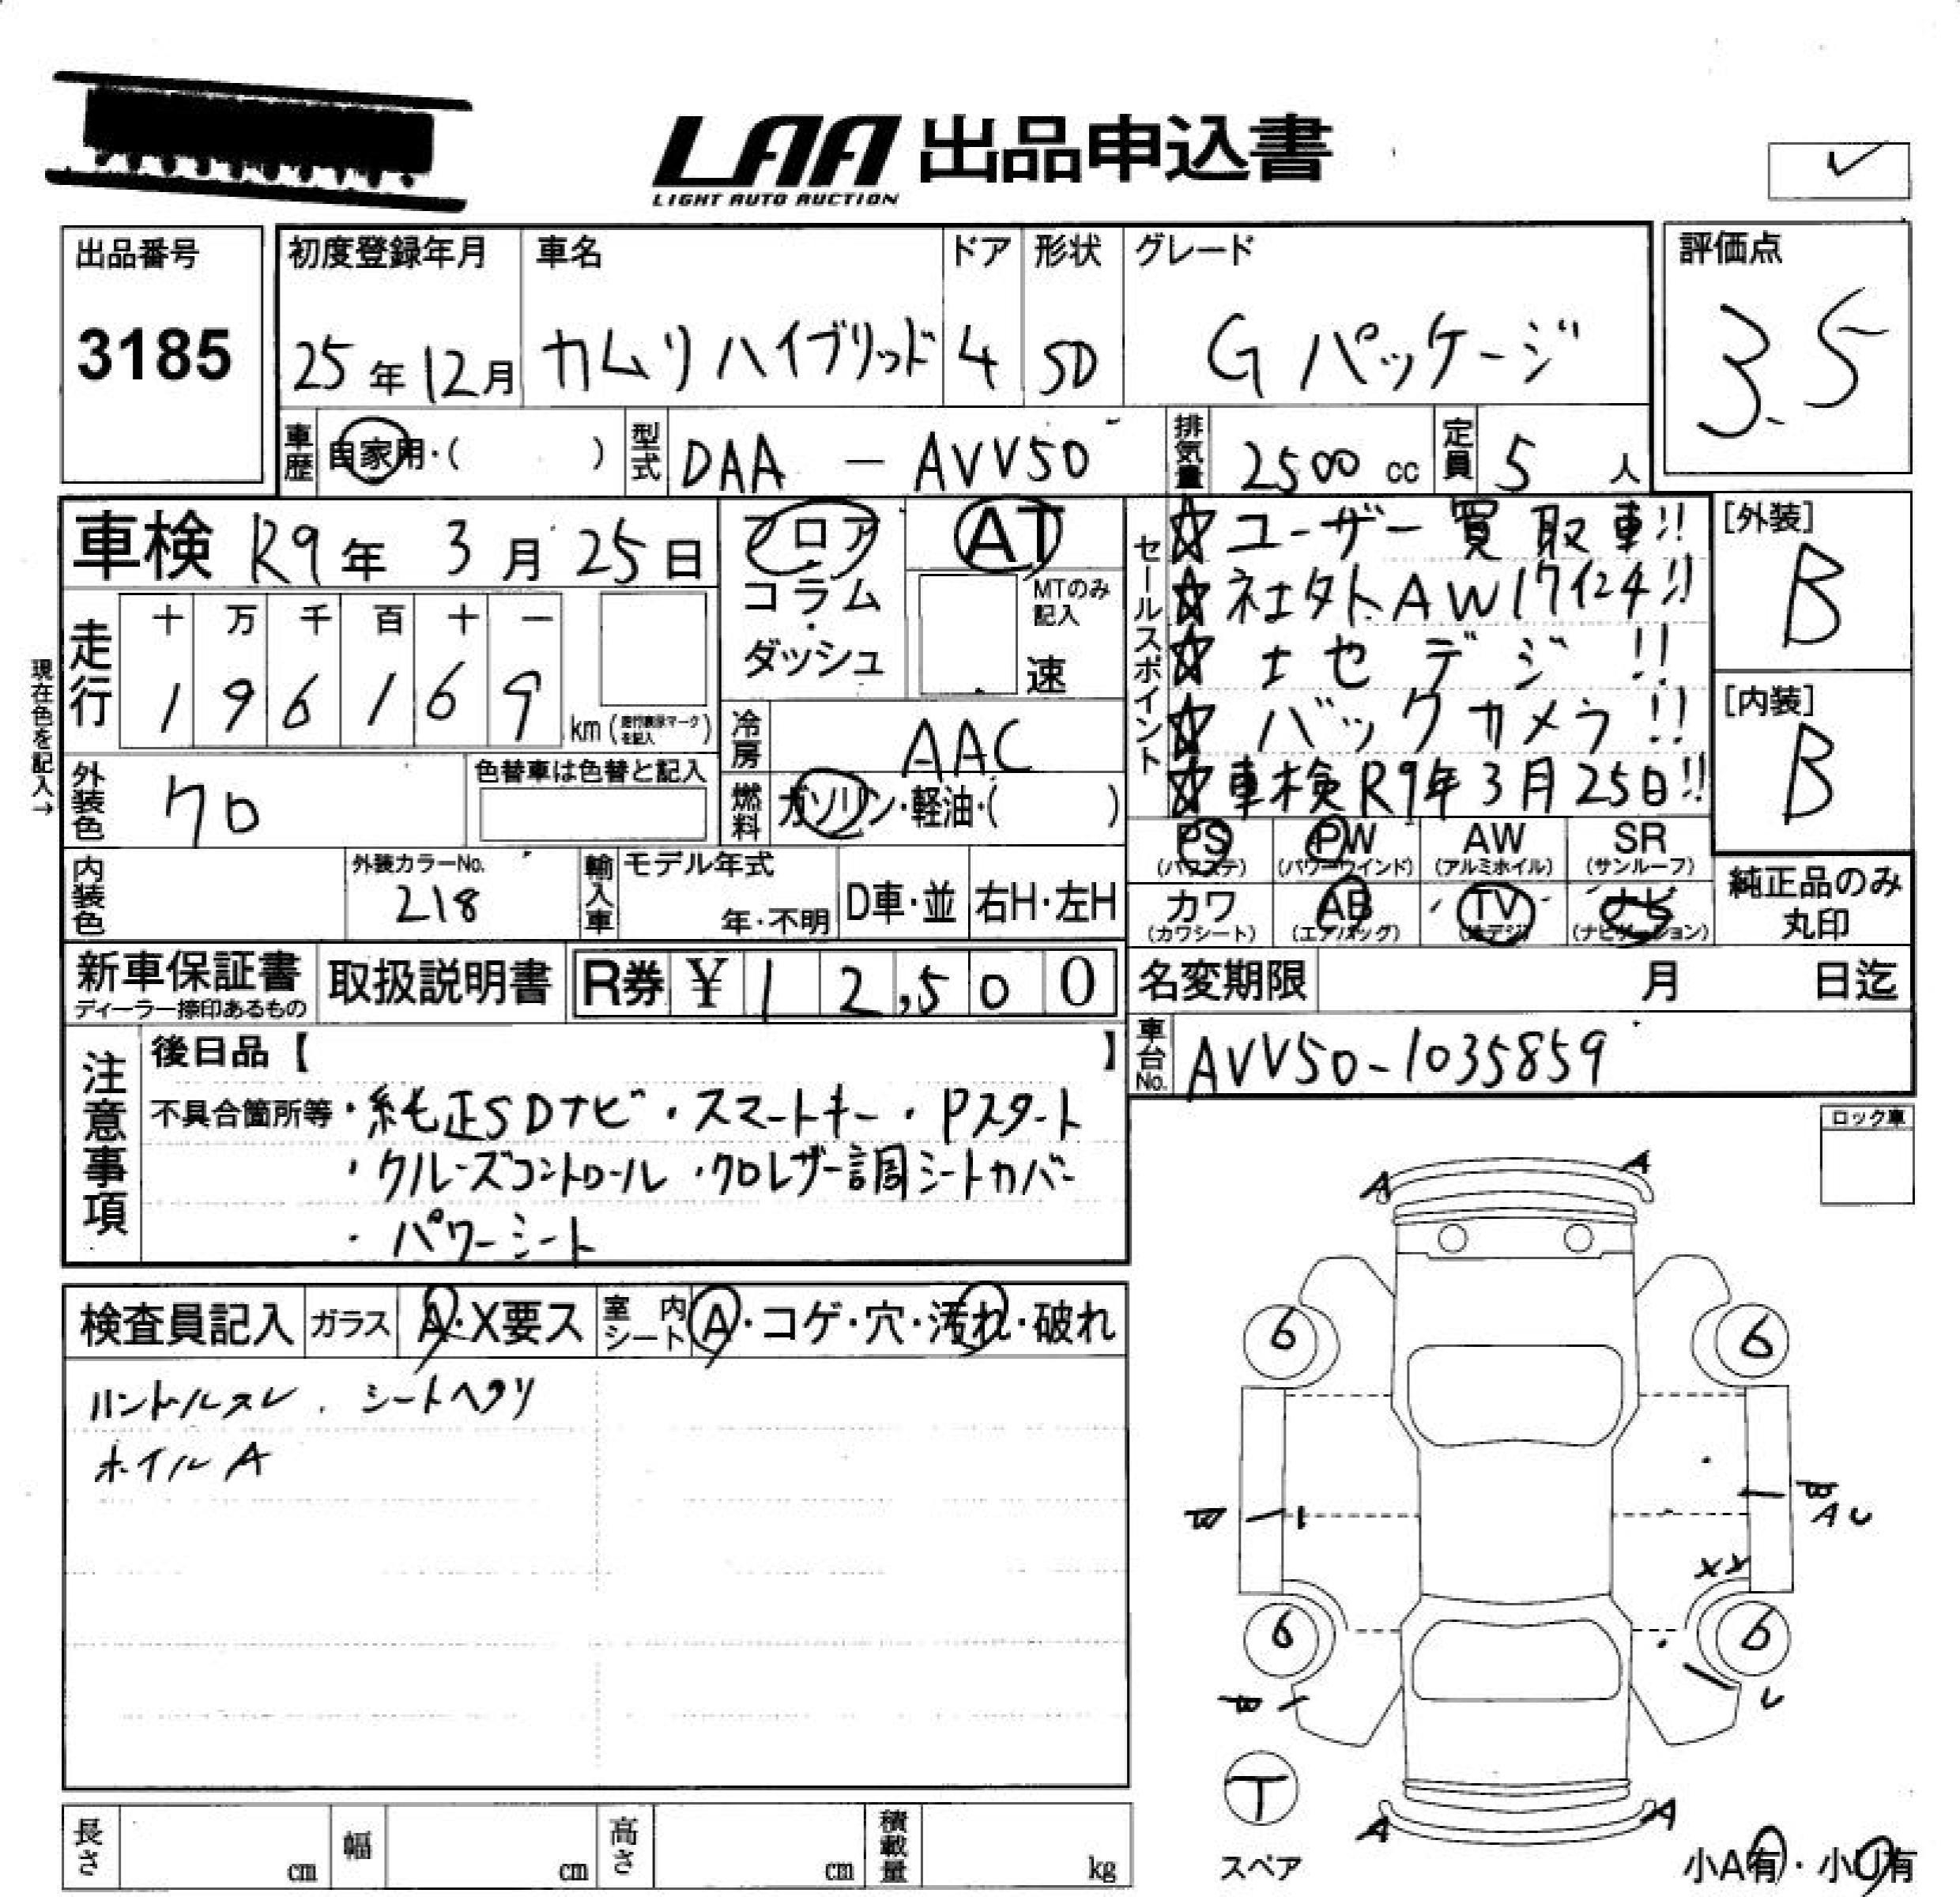 LAA 出品申込書
LIGHT AUTO AUCTION
出品番号
3185
初度登録年月
25年12月
車名
カムリハイブリッド
ドア
4
形状
SD
グレード
Gパッケージ
評価点
3.5
車歴
自家用・( )
型式
DAA - AVV50
排気量
2500 cc
定員
5 人
車検 R9年 3月 25日
フロア
コラム
・
ダッシュ
AT
MTのみ
記入
速
セールスポイント
☆ユーザー買取車!!
☆社外AW17インチ!!
☆地デジ!!
☆バックカメラ!!
☆車検R9年3月25日!!
[外装]
B
[内装]
B
現在色を記入→
走行
十 万 千 百 十 一
1 9 6 1 6 9
km (走行表示マークを記入)
冷房
AAC
燃料
ガソリン・軽油・( )
外装色
クロ
色替車は色替と記入
内装色
外装カラーNo.
218
輸入車
モデル年式
年・不明
D車・並
右H・左H
PS
(パワステ)
PW
(パワーウインド)
AW
(アルミホイル)
SR
(サンルーフ)
カワ
(カワシート)
AB
(エアバッグ)
TV
(地デジ)
ナビ
(ナビゲーション)
純正品のみ
丸印
新車保証書
ディーラー捺印あるもの
取扱説明書
R券 ¥ 12,500
名変期限
月 日迄
車台No.
AVV50-1035859
注意事項
後日品【 】
不具合箇所等・純正SDナビ・スマートキー・Pスタート
・クルーズコントロール・クロレザー調シートカバー
・パワーシート
ロック車
検査員記入
ガラス
A・X要ス
室内シート
A・コゲ・穴・汚れ・破れ
ハンドルスレ、シートヘタリ
ホイルA
A
A
6
6
W
W
A U
XX
6
6
W
U
T
スペア
A
A
小A有・小U有
長さ
cm
幅
cm
高さ
cm
積載量
kg